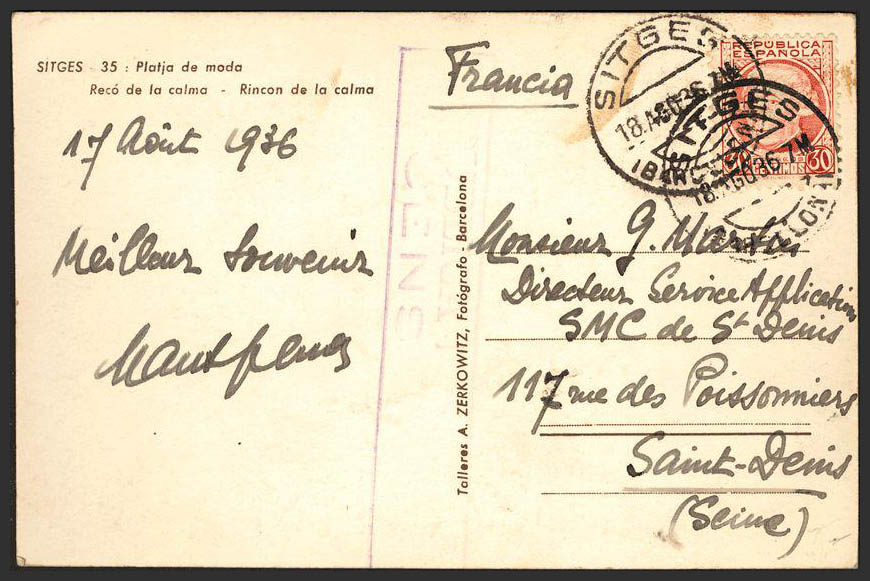 SITGES - 35 : Platja de moda
Recó de la calma - Rincon de la calma
17 Août 1936
Meilleur Souvenir
Francia
REPUBLICA
ESPAÑOLA
30 30
SITGES
18.AGO36.7M
SITGES
18.AGO36.7M
CENS
Talleres A. ZERKOWITZ, Fotógrafo - Barcelona
Monsieur G.
Directeur Service Application
SMC de St Denis
117 rue des Poissonniers
Saint-Denis
(Seine)